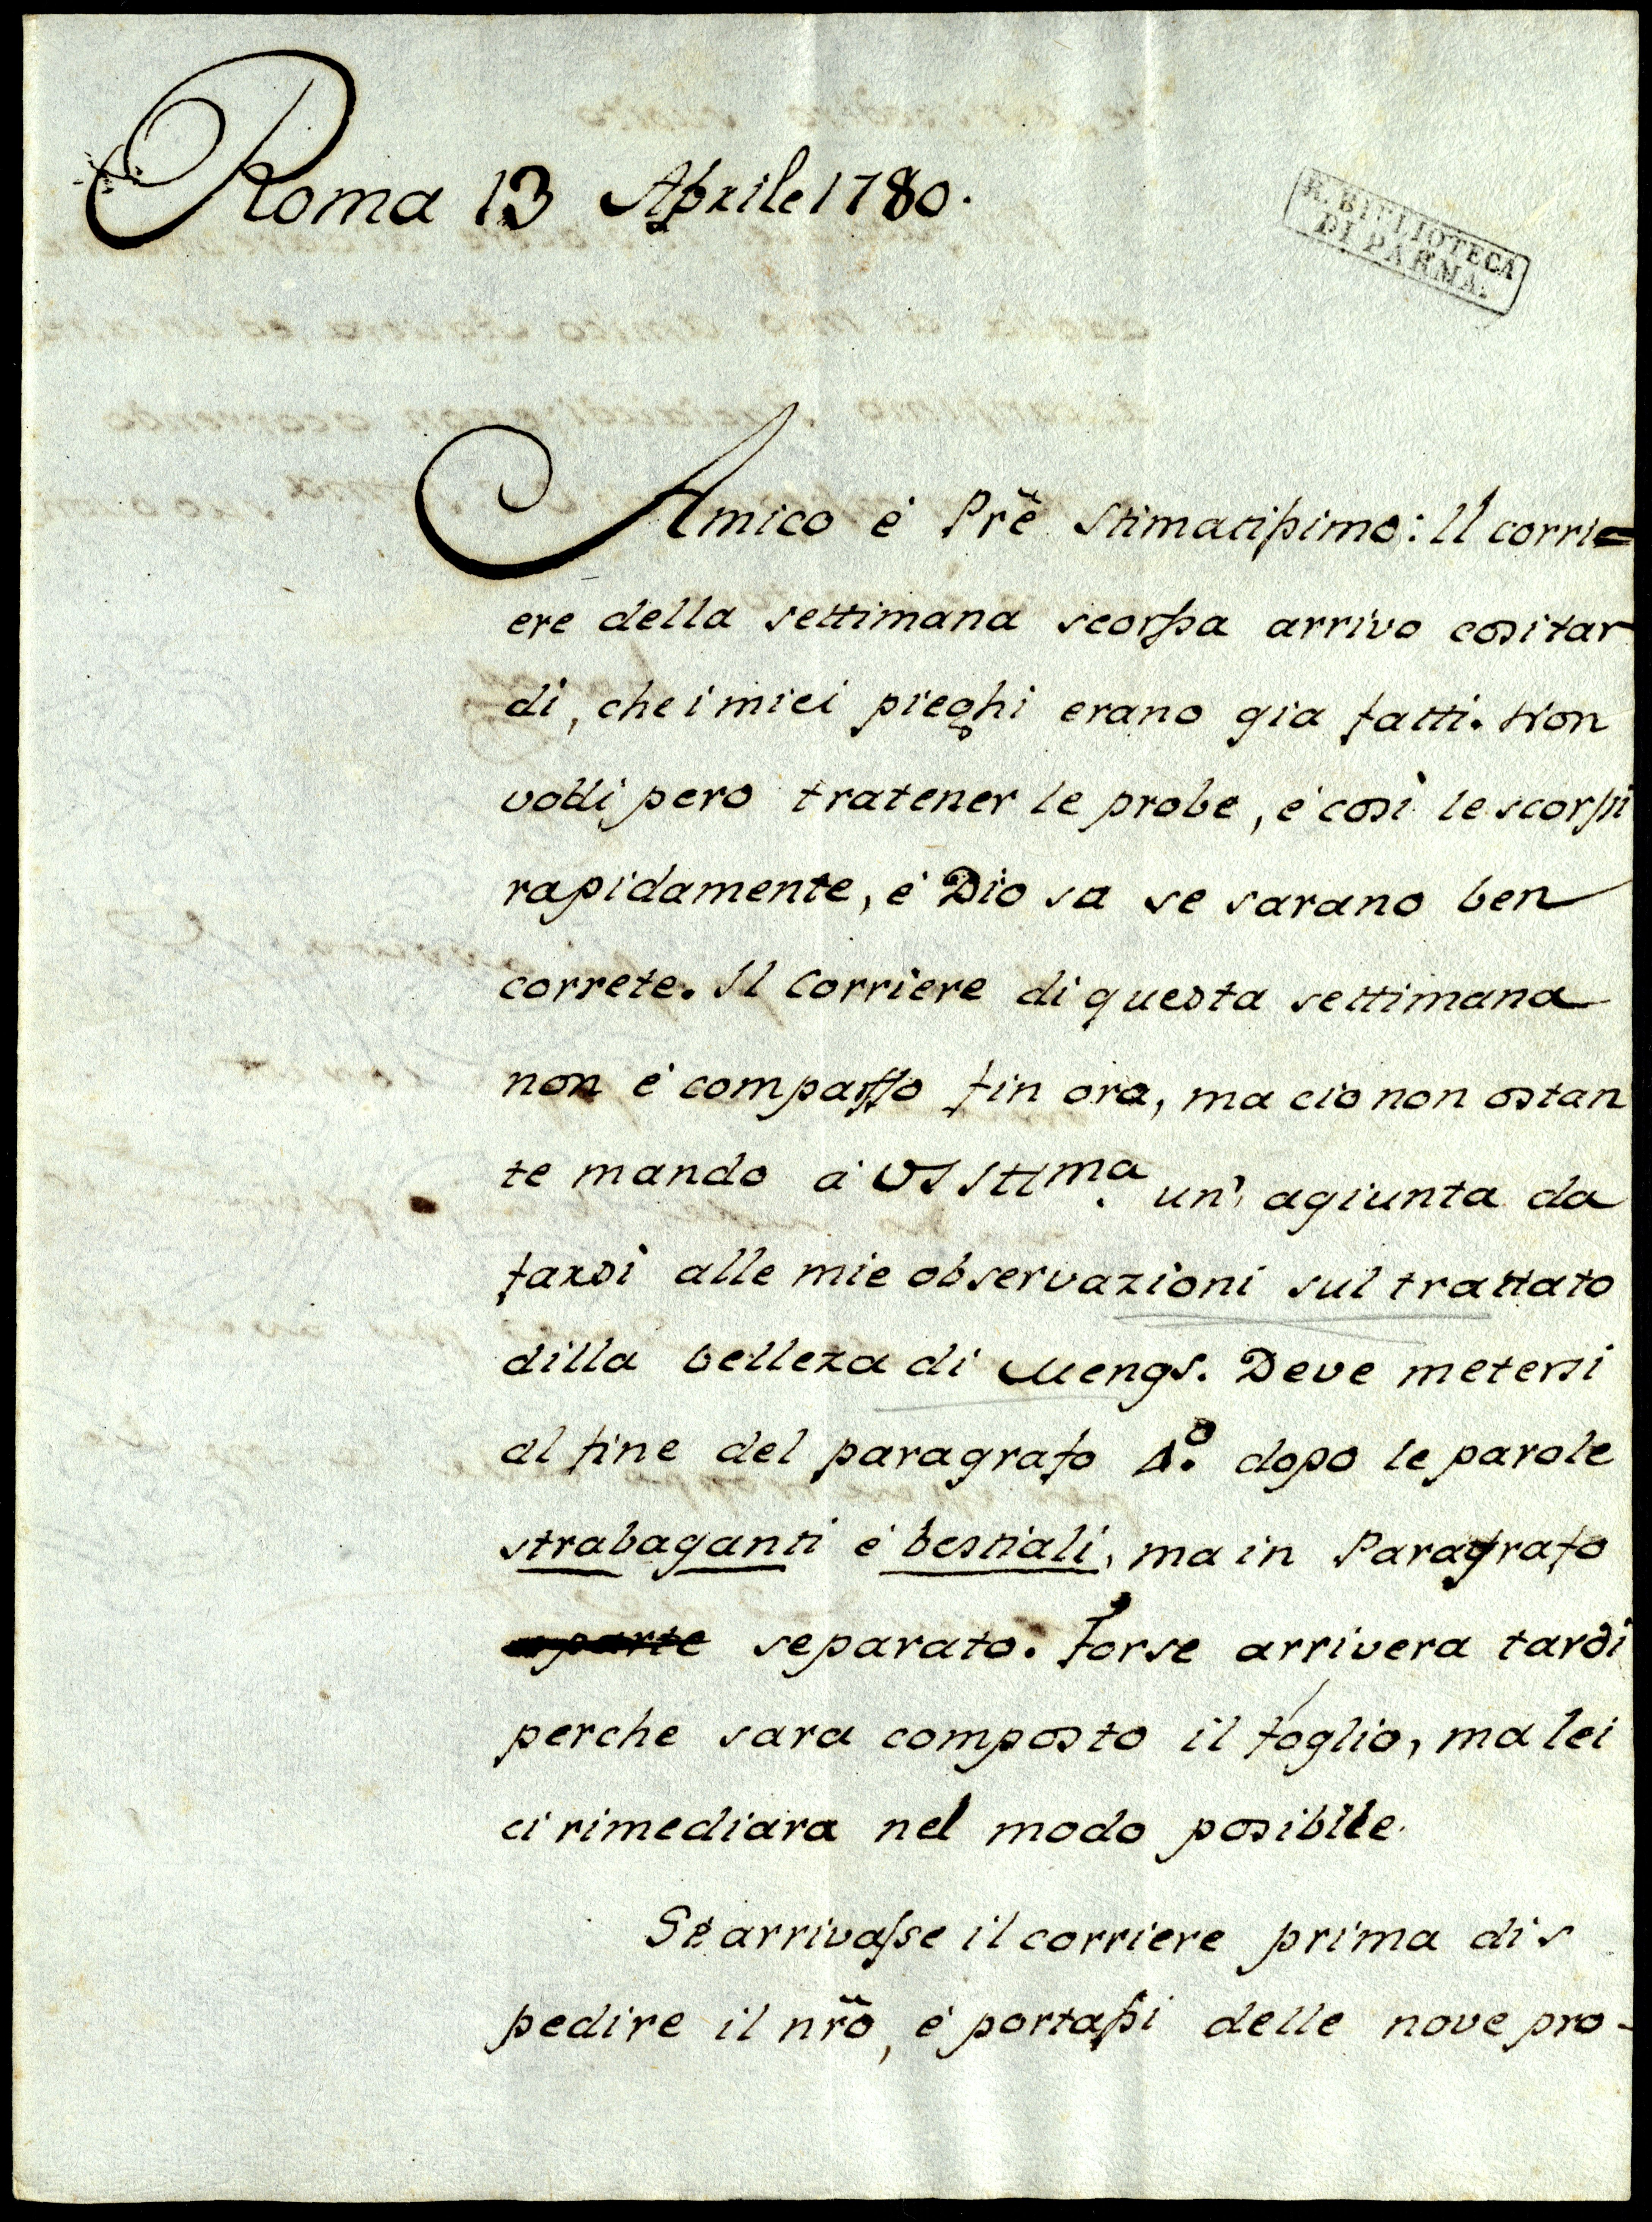 Roma 13 Aprile 1780.
R. BIBLIOTECA
DI PARMA.
Amico è Prẽ Stimatissimo: Il corri=
ere della settimana scorssa arrivo cositar-
di, che i miei pieghi erano gia fatti. Non
volli pero tratener le probe, è così le scorssi
rapidamente, è Dio sa se sarano ben
correte. Il Corriere di questa settimana
non è comparsso fin ora, ma cio non ostan
te mando à VS Ill.ma un' agiunta da
farsi alle mie observazioni sul trattato
dilla belleza di Mengs. Deve metersi
al fine del paragrafo 4.º dopo le parole
strabaganti è bestiali, ma in Paragrafo
aparte separato. Forse arrivera tardi
perche sara composto il foglio, ma lei
ci rimediara nel modo posibile.
Se arrivasse il corriere prima di s
pedire il nr̃o, è portassi delle nove pro-